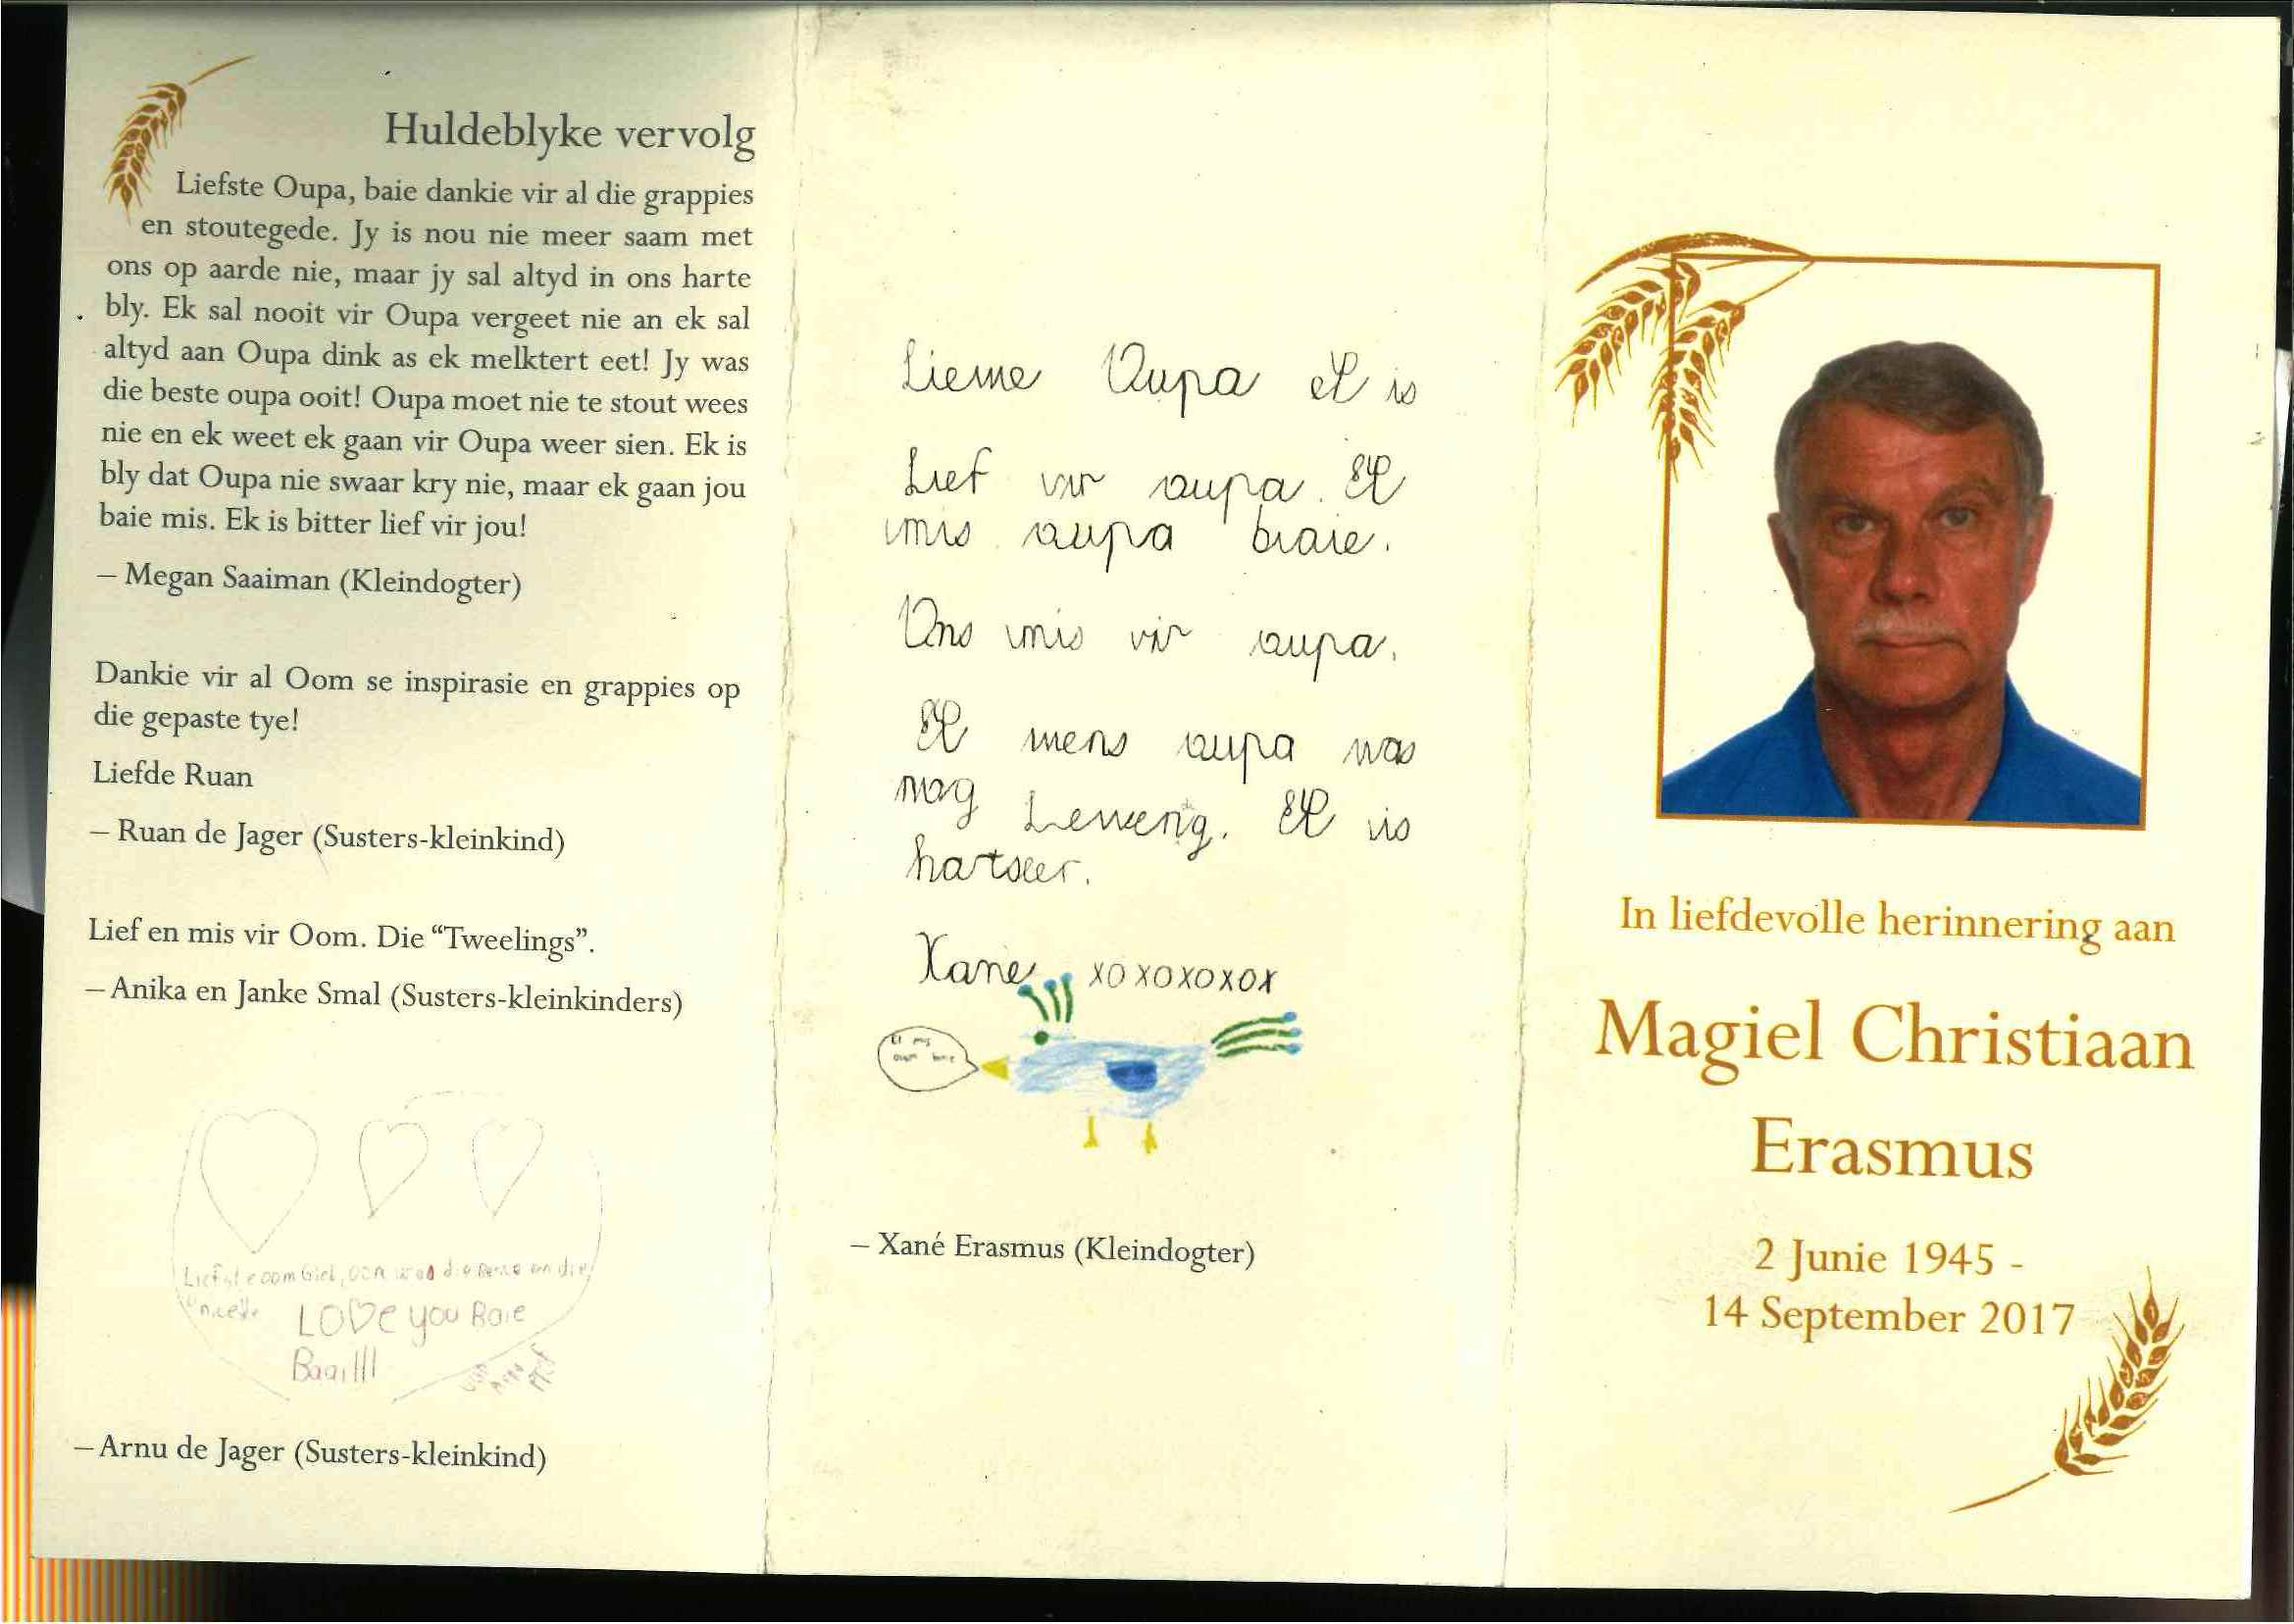 Huldeblyke vervolg
Liefste Oupa, baie dankie vir al die grappies
en stoutegede. Jy is nou nie meer saam met
ons op aarde nie, maar jy sal altyd in ons harte
bly. Ek sal nooit vir Oupa vergeet nie an ek sal
altyd aan Oupa dink as ek melktert eet! Jy was
die beste oupa ooit! Oupa moet nie te stout wees
nie en ek weet ek gaan vir Oupa weer sien. Ek is
bly dat Oupa nie swaar kry nie, maar ek gaan jou
baie mis. Ek is bitter lief vir jou!
– Megan Saaiman (Kleindogter)
Dankie vir al Oom se inspirasie en grappies op
die gepaste tye!
Liefde Ruan
– Ruan de Jager (Susters-kleinkind)
Lief en mis vir Oom. Die “Tweelings”.
– Anika en Janke Smal (Susters-kleinkinders)
Liefste oom Giel, oom was die en die
LOVE you Baie
– Arnu de Jager (Susters-kleinkind)
Liewe Oupa ek is
Lief vir oupa. Ek
mis oupa baie.
Ons mis vir oupa.
Ek wens oupa was
nog Lewerig. Ek is
hartseer.
Xané xoxoxoxox
Ek mis
oupa baie
– Xané Erasmus (Kleindogter)
In liefdevolle herinnering aan
Magiel Christiaan
Erasmus
2 Junie 1945 -
14 September 2017